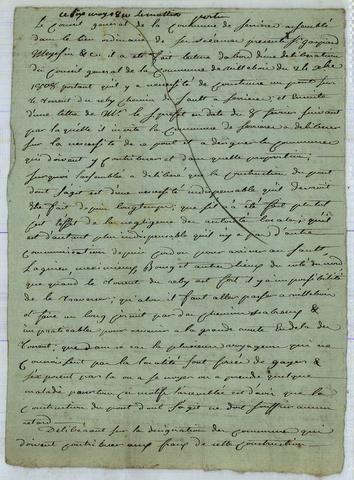 ce six mars 1810 le matin
Le Conseil general de la Commune de Serrieres assemblé
dans le lieu ordinaire de ses seances present Sr Gaspard
il a été fait lecture d'abord d'une deliberation
du Conseil general de la Commune de
1808 portant qu'il y a necessité de Construire un pont sur
le torrent du chemin du Sault a Serrieres, et Ensuite
d'une lettre de Mr le s. prefet en date du 8 fevrier suivant
par laquelle il invite la Commune de Serrieres a deliberer
sur la necessité de ce pont et a designer les Communes
qui doivent y Contribuer et dans quelle proportion;
Surquoi l'assemblée a deliberé que la Construction du pont
dont s'agit est d'une necessité indispensable qu'il devroit
Etre fait depuis longtemps, que s'il n'a été fait plutot
c'est l'effet de la negligence des autorités locales; qu'il
est d'autant plus indispensable qu'il n'y a pas d'autre
Communication depuis pour arriver au Sault
Lagnieu, meximieux, Bourg et autres lieux du coté du nord
que quand le torrent est fort il y a impossibilité
de le Traverser; qu'alors il faut aller passer a
et faire un long circuit par des chemins scabreux &
impraticables pour revenir a la grande route au dela du
torrent; que dans ce cas la plusieurs voyageurs qui ne
Connaissent pas la localité sont forcés de &
s'exposent par la ou a se noyer ou a prendre quelque
maladie par tous ces motifs l'assemblée est d'avis que la
Construction du pont dont s'agit ne doit souffrir aucun
retard
Deliberant sur la designation des Communes qui
doivent contribuer aux frais de cette Construction